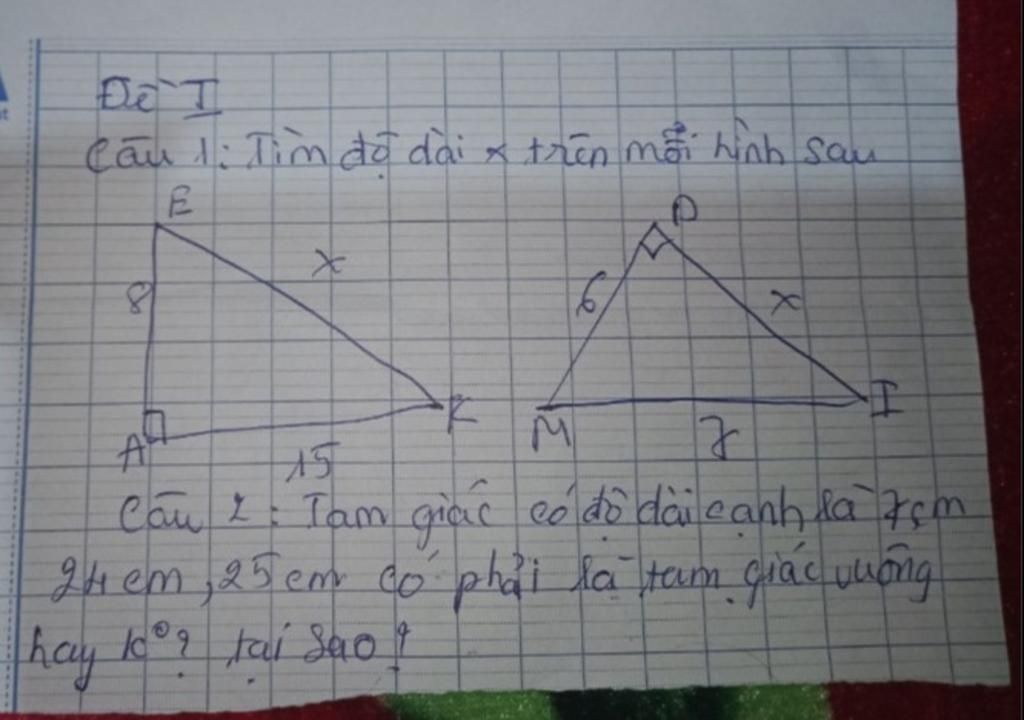 Đề I
Câu 1: Tìm độ dài x trên mỗi hình sau
E
x
8
A
K
15
D
6
x
M
I
7
Câu 2: Tam giác có độ dài cạnh là 7cm
24 cm, 25 cm có phải là tam giác vuông
hay k°? tại sao?